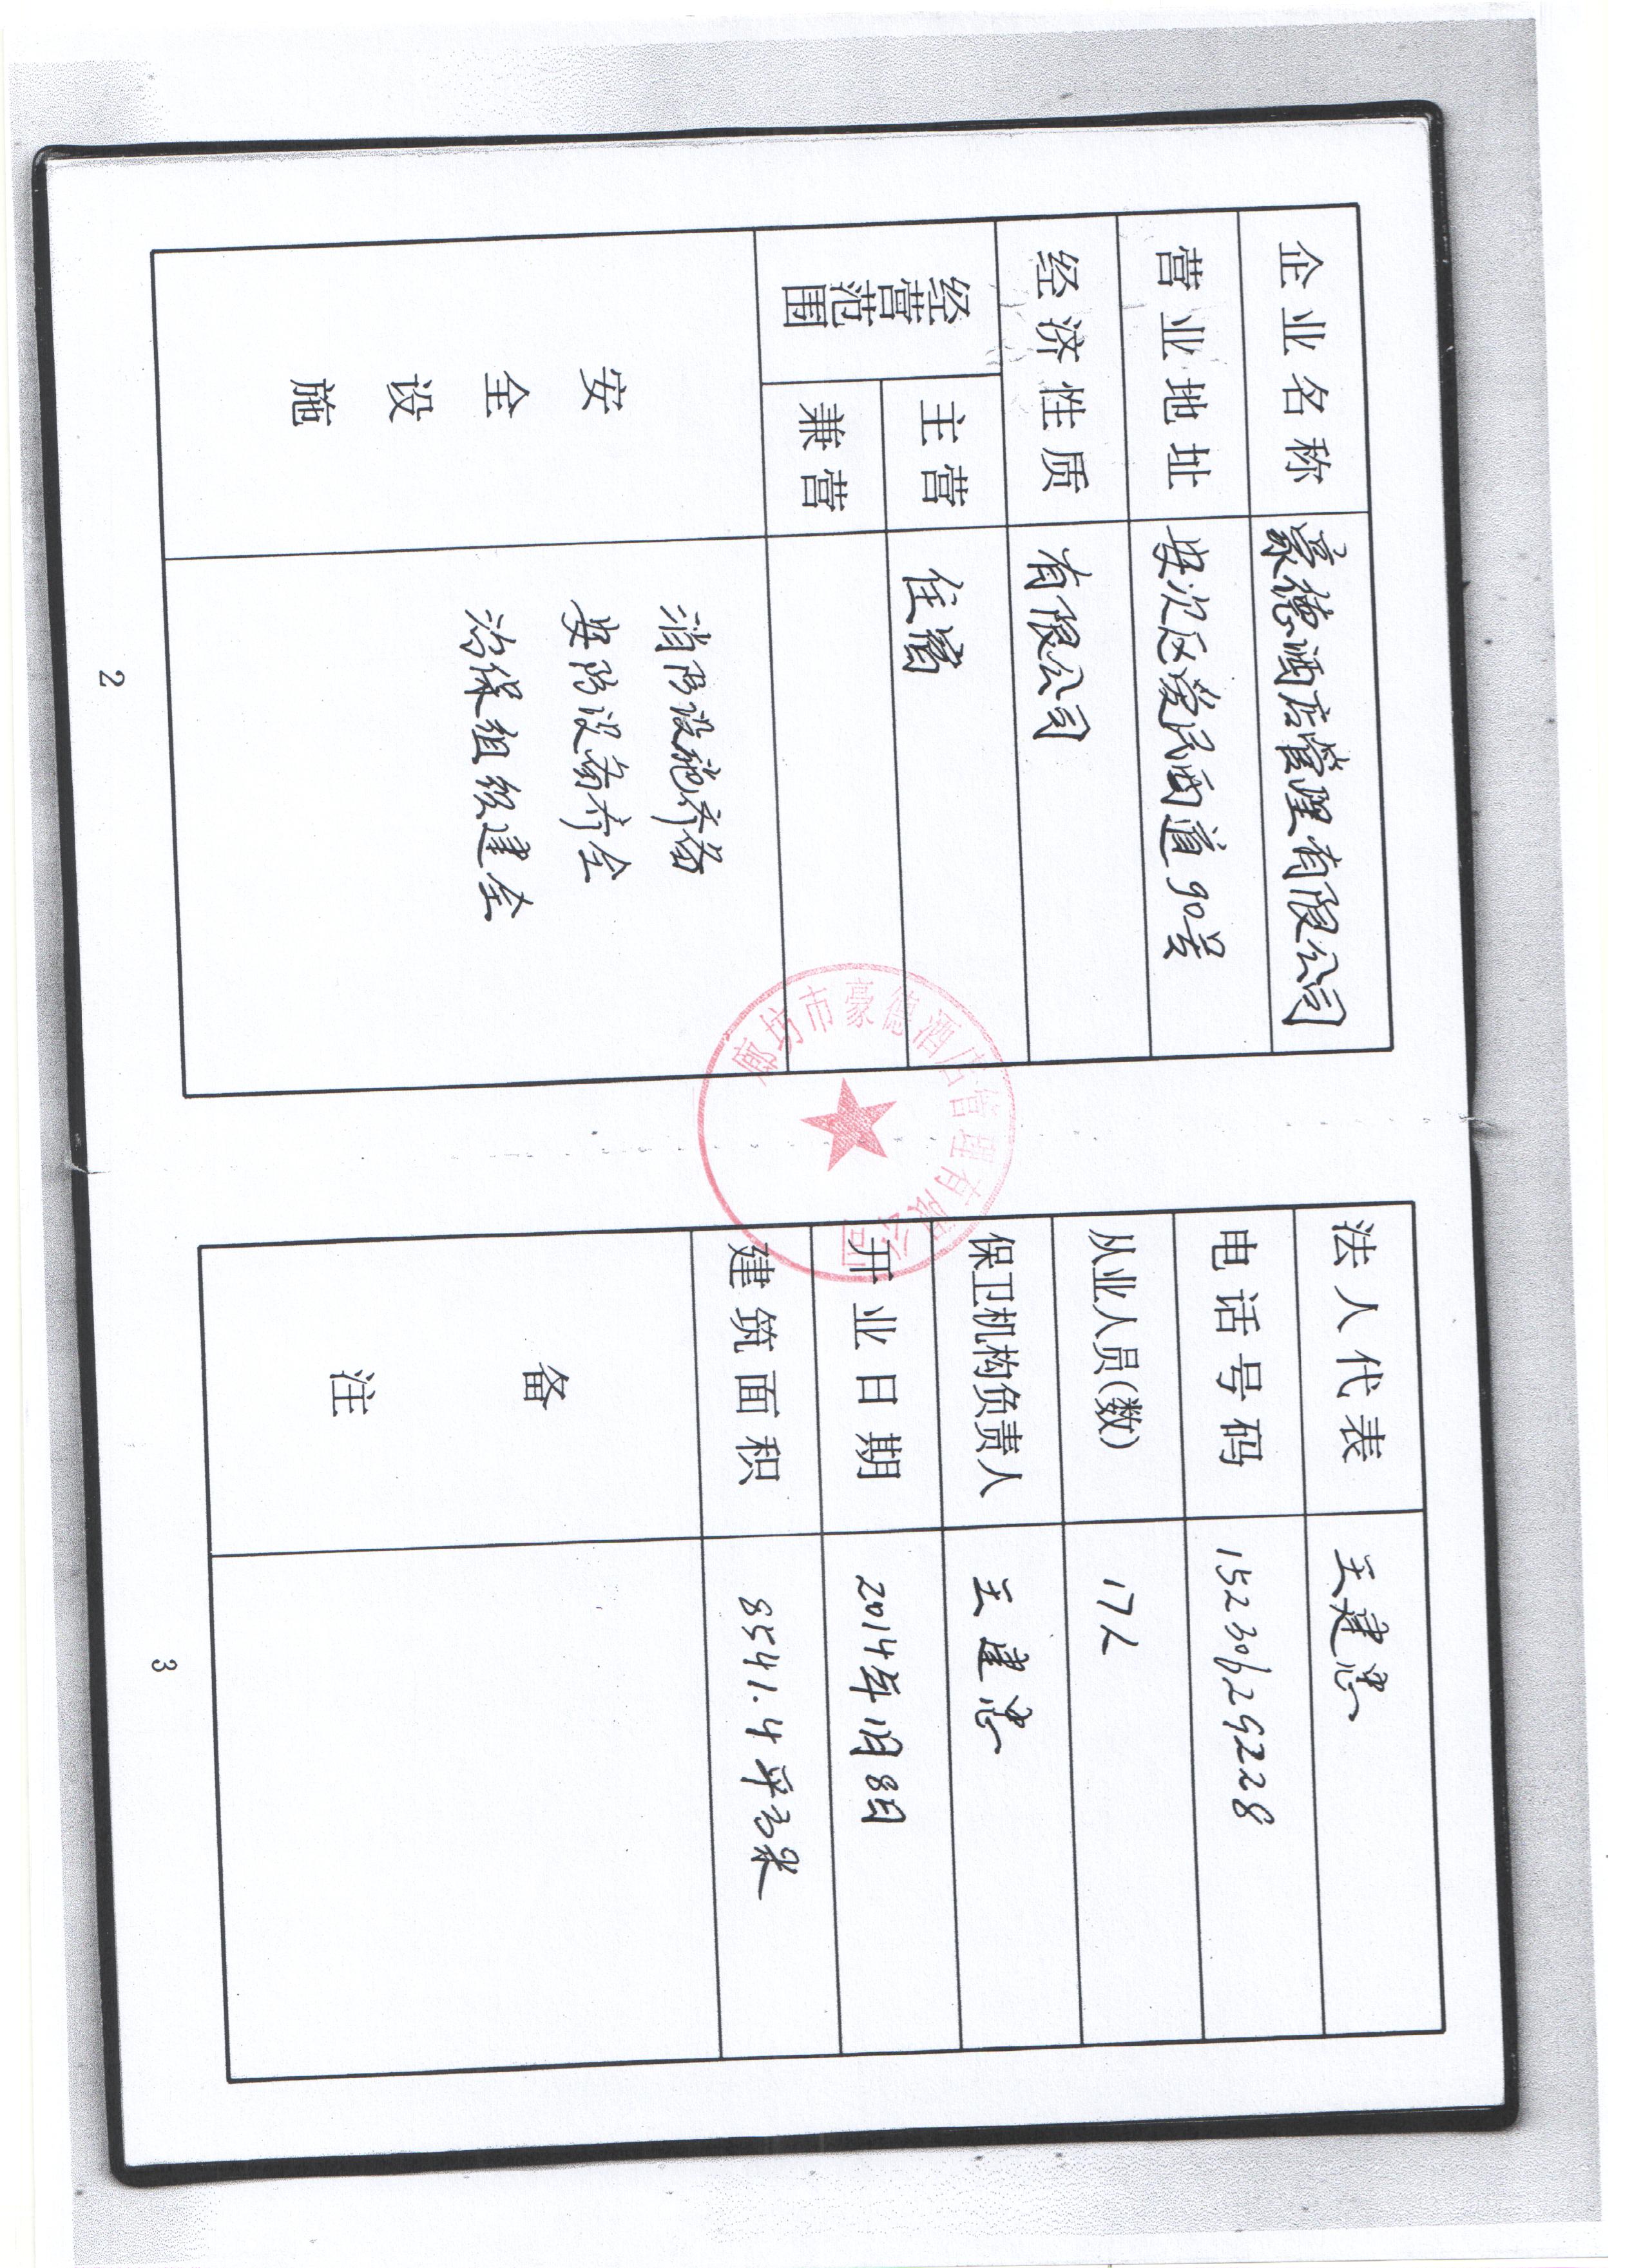 企业名称 豪德酒店管理有限公司
营业地址 安次区爱民西道90号
经济性质 有限公司
经营范围 主营 住宿
兼营
安全设施
消防设施齐备
安防设备齐全
治保组织建全
2
廊坊市豪德酒店管理有限公司
法人代表 王建忠
电话号码 15230629228
从业人员(数) 17人
保卫机构负责人 王建忠
开业日期 2014年1月8日
建筑面积 8541.4平方米
备注
3